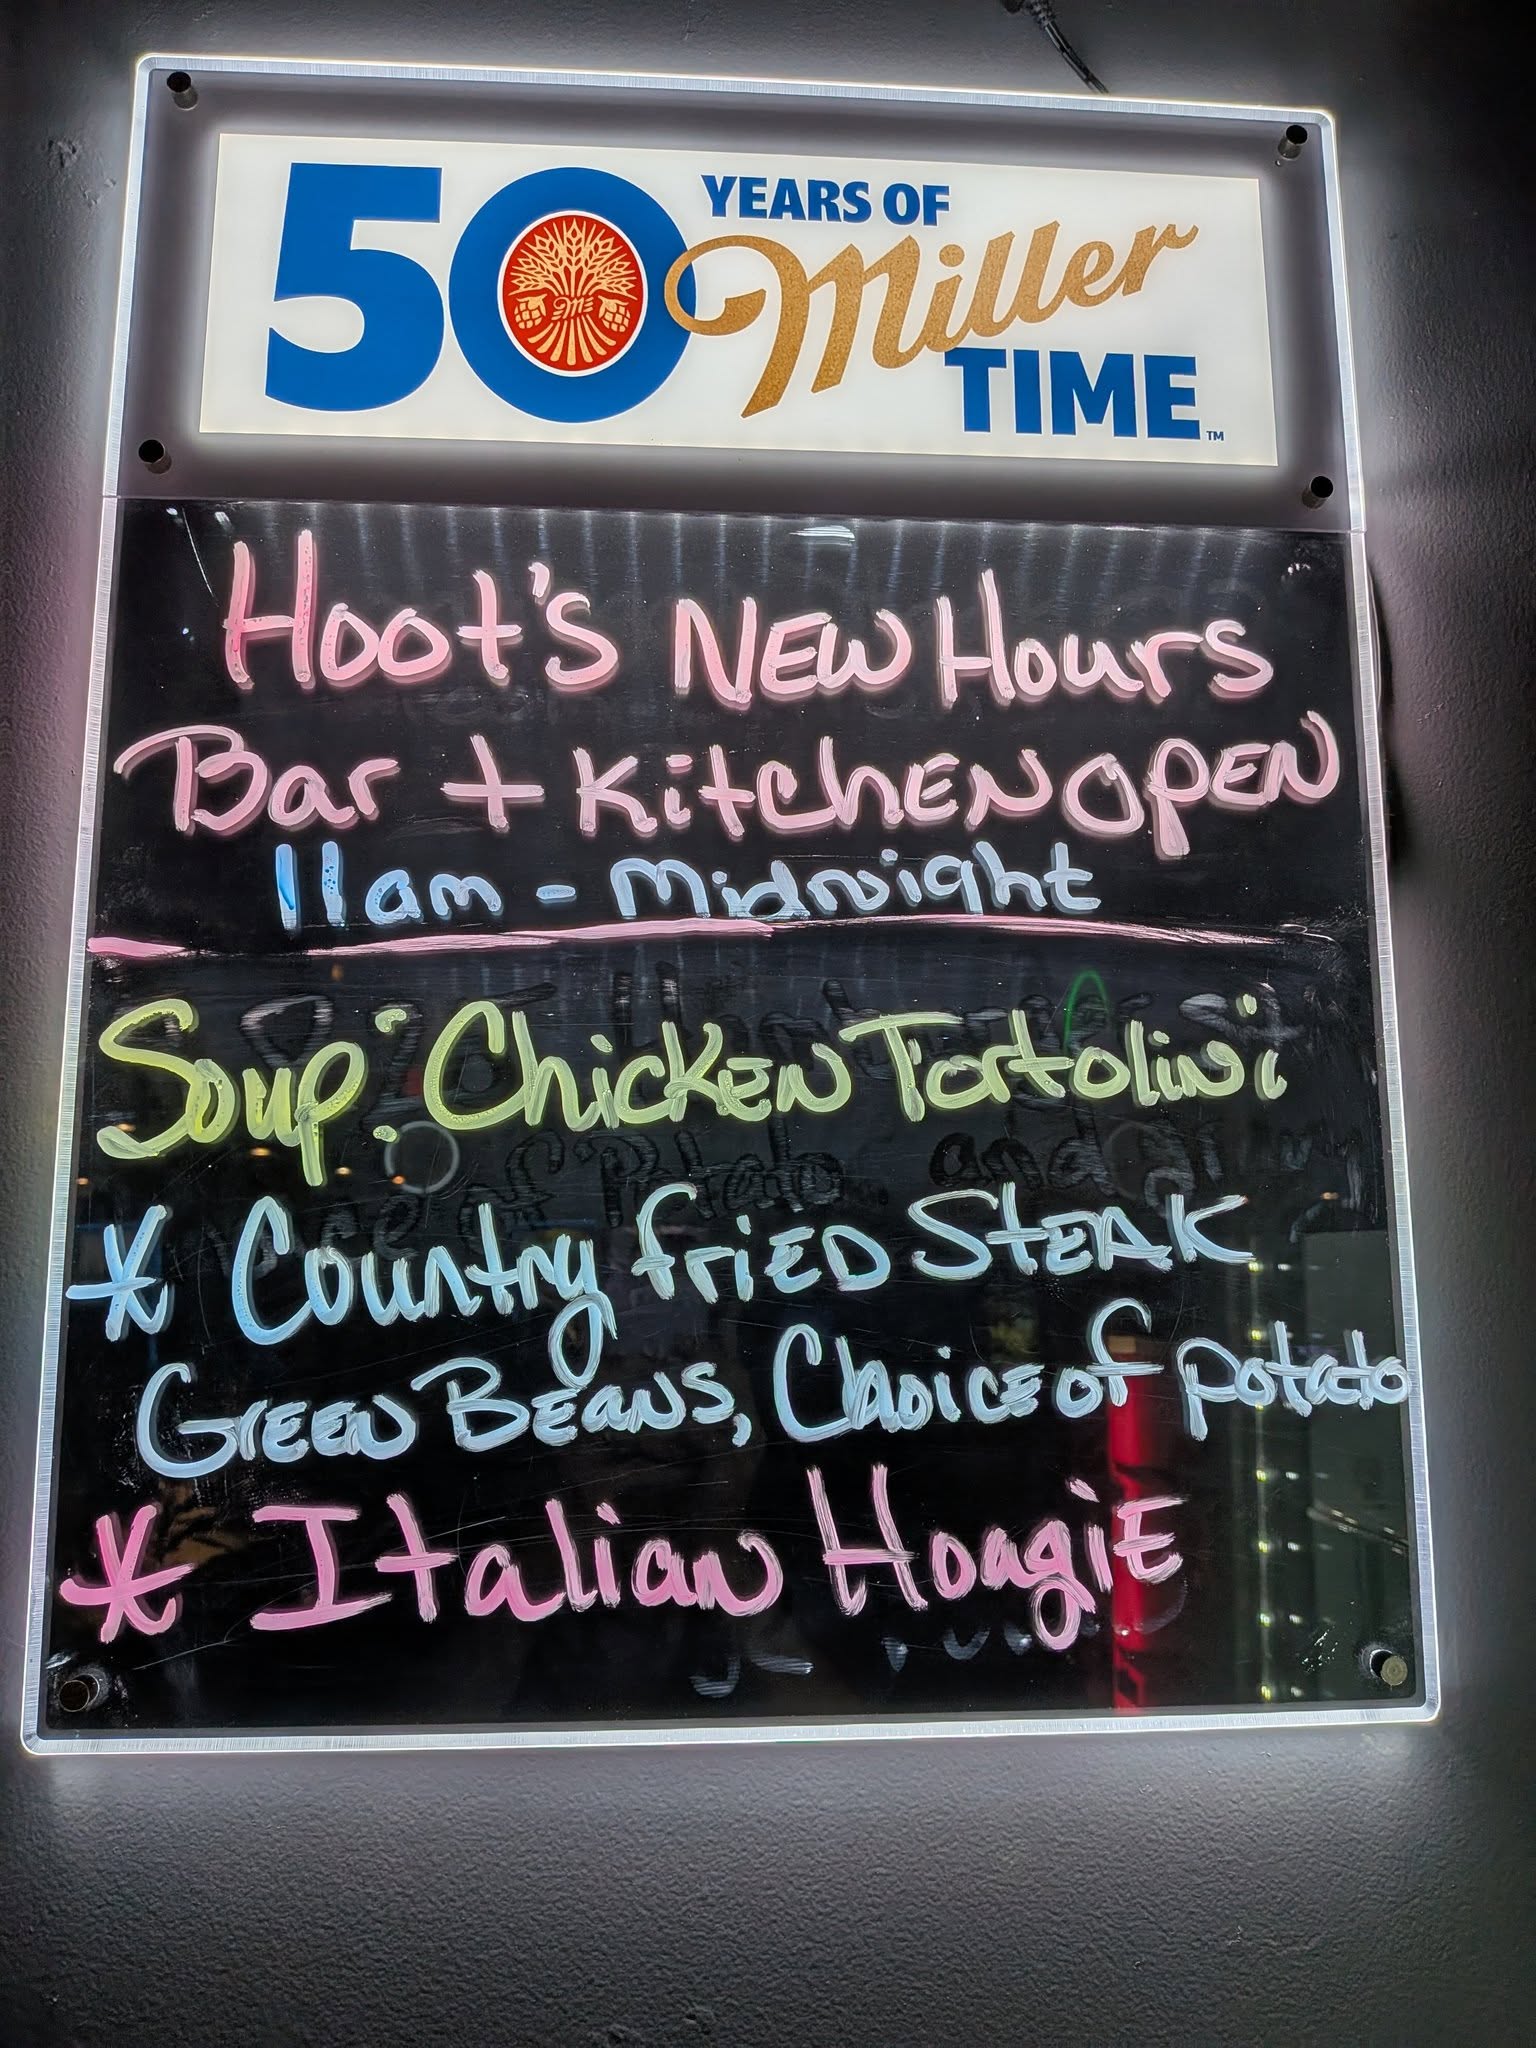 50 YEARS OF
Miller
TIME™
Hoot's NEW Hours
Bar + Kitchen OPEN
11am - Midnight
Soup: Chicken Tortolini
* Country fried STEAK
Green Beans, Choice of potato
* Italian Hoagie